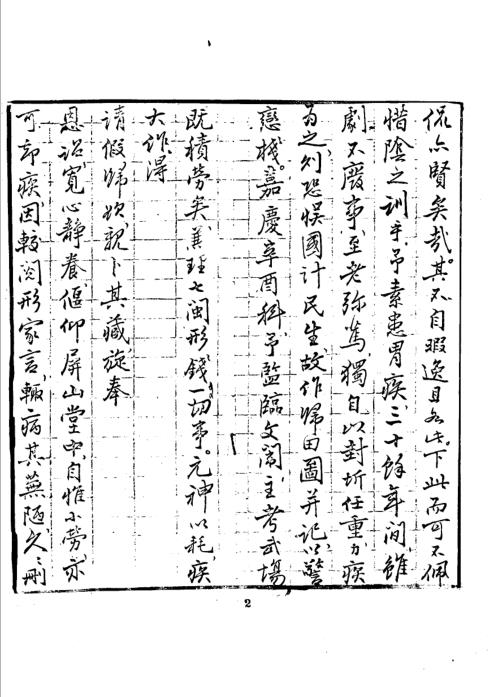 侃亦賢矣哉。其不自暇逸且如此。下此而可不佩
惜陰之訓乎。予素患胃疾、三十餘年間、雖
劇不廢事、至老弥篤、獨自以封圻任重力疾
為之、則恐悞國計民生、故作歸田圖并記以警
戀棧。嘉慶辛酉科、予監臨文闈、主考武場、
既積勞矣、兼理七閩形錢一切事。元神以耗、疾
大作、得
請假歸、欲親卜其藏、旋奉
恩詔、寬心靜養、偃仰屏山堂中、自惟小勞、亦
可却疾、因較閱形家言、輒病其蕪陋、久々刪
2